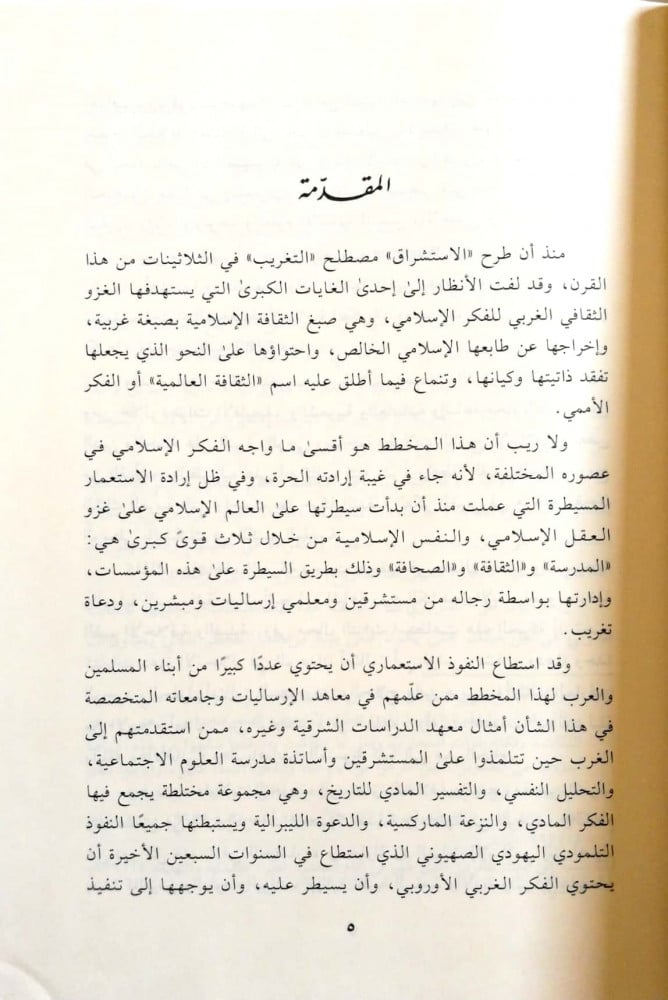 المقدّمة
منذ أن طرح «الاستشراق» مصطلح «التغريب» في الثلاثينات من هذا
القرن، وقد لفت الأنظار إلىٰ إحدىٰ الغايات الكبرىٰ التي يستهدفها الغزو
الثقافي الغربي للفكر الإسلامي، وهي صبغ الثقافة الإسلامية بصبغة غربية،
وإخراجها عن طابعها الإسلامي الخالص، واحتواؤها علىٰ النحو الذي يجعلها
تفقد ذاتيتها وكيانها، وتنماع فيما أطلق عليه اسم «الثقافة العالمية» أو الفكر
الأممي.
ولا ريب أن هذا المخطط هو أقسىٰ ما واجه الفكر الإسلامي في
عصوره المختلفة، لأنه جاء في غيبة إرادته الحرة، وفي ظل إرادة الاستعمار
المسيطرة التي عملت منذ أن بدأت سيطرتها علىٰ العالم الإسلامي علىٰ غزو
العقل الإسلامي، والنفس الإسلامية من خلال ثلاث قوىً كبرىٰ هي:
«المدرسة» و«الثقافة» و«الصحافة» وذلك بطريق السيطرة علىٰ هذه المؤسسات،
وإدارتها بواسطة رجاله من مستشرقين ومعلمي إرساليات ومبشرين، ودعاة
تغريب.
وقد استطاع النفوذ الاستعماري أن يحتوي عددًا كبيرًا من أبناء المسلمين
والعرب لهذا المخطط ممن علّمهم في معاهد الإرساليات وجامعاته المتخصصة
في هذا الشأن أمثال معهد الدراسات الشرقية وغيره، ممن استقدمتهم إلىٰ
الغرب حين تتلمذوا علىٰ المستشرقين وأساتذة مدرسة العلوم الاجتماعية،
والتحليل النفسي، والتفسير المادي للتاريخ، وهي مجموعة مختلطة يجمع فيها
الفكر المادي، والنزعة الماركسية، والدعوة الليبرالية ويستبطنها جميعًا النفوذ
التلمودي اليهودي الصهيوني الذي استطاع في السنوات السبعين الأخيرة أن
يحتوي الفكر الغربي الأوروبي، وأن يسيطر عليه، وأن يوجهها إلىٰ تنفيذ
٥